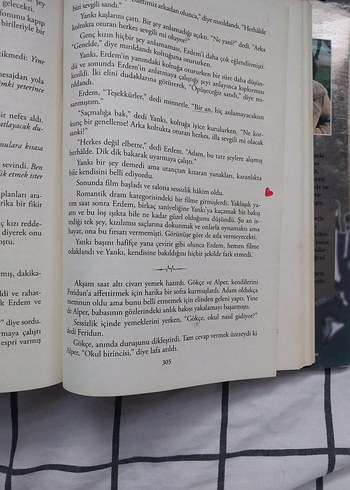 gelecekti.
fonunu kapıp
birileriyle bir
tikmedi: Yine
nesajdan yola
inki yeterince
bir nefes aldı.
atlayacak du-
nulara kısasa
sevindi. Ben
dik etmek ister
planları ara-
rika bir fikir
kızı redde-
diyerek onu
oştu.
mış, dakika-
ldi ve rahat-
k Erdem ve
" diye sordu.
maya çalıştı
espri varmış
arkadaşı olunca," diye mırıldandı. "Herhâlde
biri sevgili sandı."
Yankı kaşlarını çattı. Bir şey anlamadığı açıktı. "Ne yani?" dedi. "Arka
koltukta oturan herkes sevgili mi oluyor?"
Genç kızın hiçbir şey anlamaması, Erdem'i daha çok eğlendirmişti.
"Genelde," diye mırıldandı koltuğuna otururken.
Yankı, Erdem'in yanındaki koltuğa otururken bir süre daha düşün-
dü ve sonunda Erdem'in anlatmaya çalıştığı şeyi anlayınca kıpkırmızı
kesildi. İki elini dudaklarına götürerek, "Öpüşeceğiz sandı," diye mı-
rıldandı.
Erdem, "Teşekkürler," dedi minnetle. "Bir an, hiç anlamayacaksın
sanmıştım."
"Saçmalığa bak," dedi Yankı, koltuğa iyice kurulurken. "Ne kor-
kunç bir genelleme! Arka koltukta oturan herkes, illa sevgili mi olacak
sanki!"
"Herkes değil elbette," dedi Erdem. "Adam, bu tarz şeylere alışmış
herhâlde. Dik dik bakarak uyarmaya çalıştı."
Yankı bir şey demedi ama utançtan kızaran yanakları, karanlıkta
bile kendisini belli ediyordu.
Sonunda film başladı ve salona sessizlik hâkim oldu.
Romantik dram kategorisindeki bir filme girmişlerdi. Yaklaşık ya-
rım saat sonra Erdem, birkaç saniyeliğine Yankı'ya kaçamak bir bakış
attı ve bu loş ışıkta bile ne kadar güzel olduğunu düşündü. Şu an is-
tediği tek şey, kızılımsı saçlarına dokunmak ve onlarla oynamaktı ama
hayat, ona bu fırsatı vermemişti. Görünüşe göre de asla vermeyecekti.
Yankı başını hafifçe yana çevirir gibi olunca Erdem, hemen filme
odaklandı ve Yankı, kendisine bakıldığını hiçbir şekilde fark etmedi.
Akşam saat altı civarı yemek hazırdı. Gökçe ve Alper, kendilerini
Feridun'a affettirmek için harika bir sofra kurmuşlardı. Adam oldukça
memnun oldu ama bunu belli etmemek için elinden geleni yaptı. Yine
de Alper, babasının gözlerindeki anlık bakışı yakalamayı başarmıştı.
Sessizlik içinde yemeklerini yerken, "Gökçe, okul nasıl gidiyor?"
dedi Feridun.
Gökçe, anında duruşunu dikleştirdi. Tam cevap vermek üzereydi ki
Alper, "Okul birincisi," diye lafa atıldı.
305